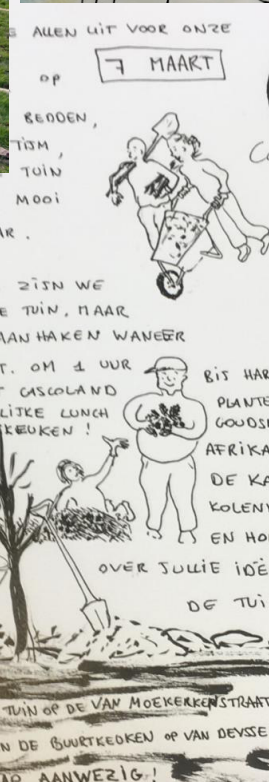 ALLEN UIT VOOR ONZE
OP 7 MAART
BEDDEN,
TIJM,
TUIN
MOOI
ZIJN WE
E TUIN, MAAR
AAN HAKEN WANEER
T. OM 1 UUR
CASCOLAND
LIJKE LUNCH
KEUKEN !
BIS HAR
PLANTE
GOUDS
AFRIKA
DE KA
KOLEN
EN HO
OVER JULLIE IDË
DE TUI
TUIN OP DE VAN MOEKERKENSTRAAT
N DE BUURTKEOKEN OP VAN DEYSSE
AANWEZIG !